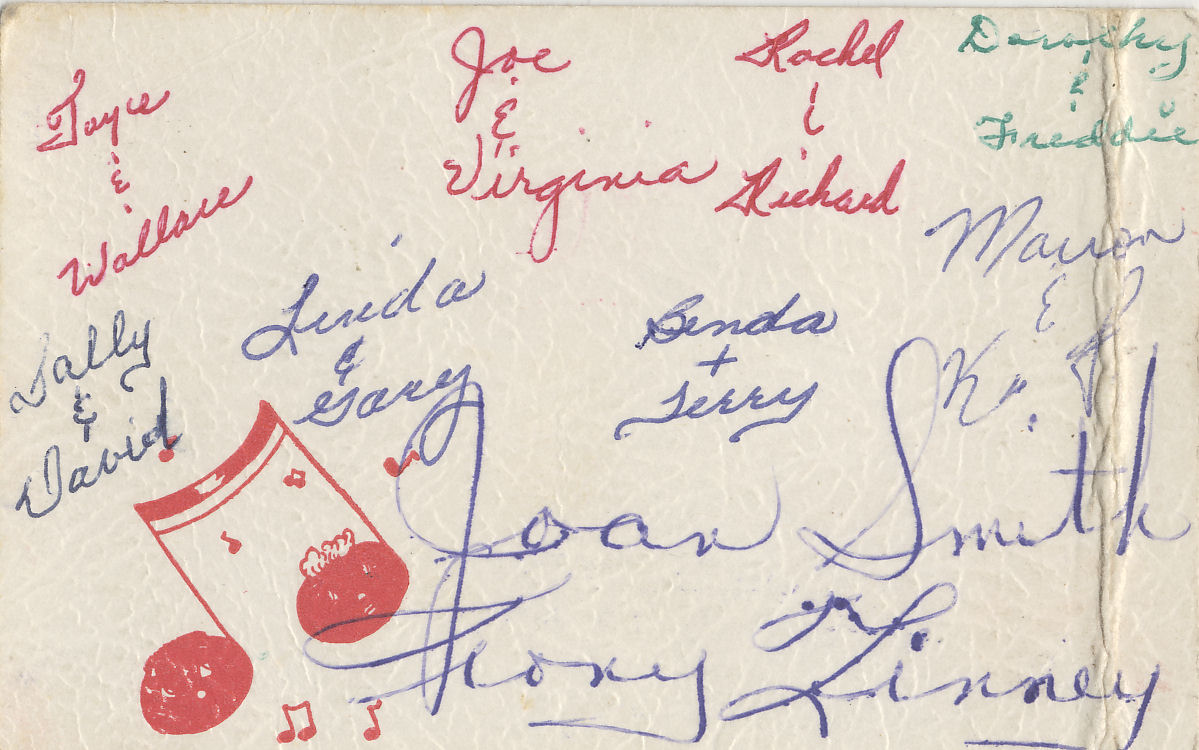 Joyce
&
Wallace
Joe
&
Virginia
Rachel
&
Richard
Dorothy
&
Freddie
Sally
&
David
Linda
&
Gary
Benda
+
Terry
Marion
&
Joan Smith
Kinney